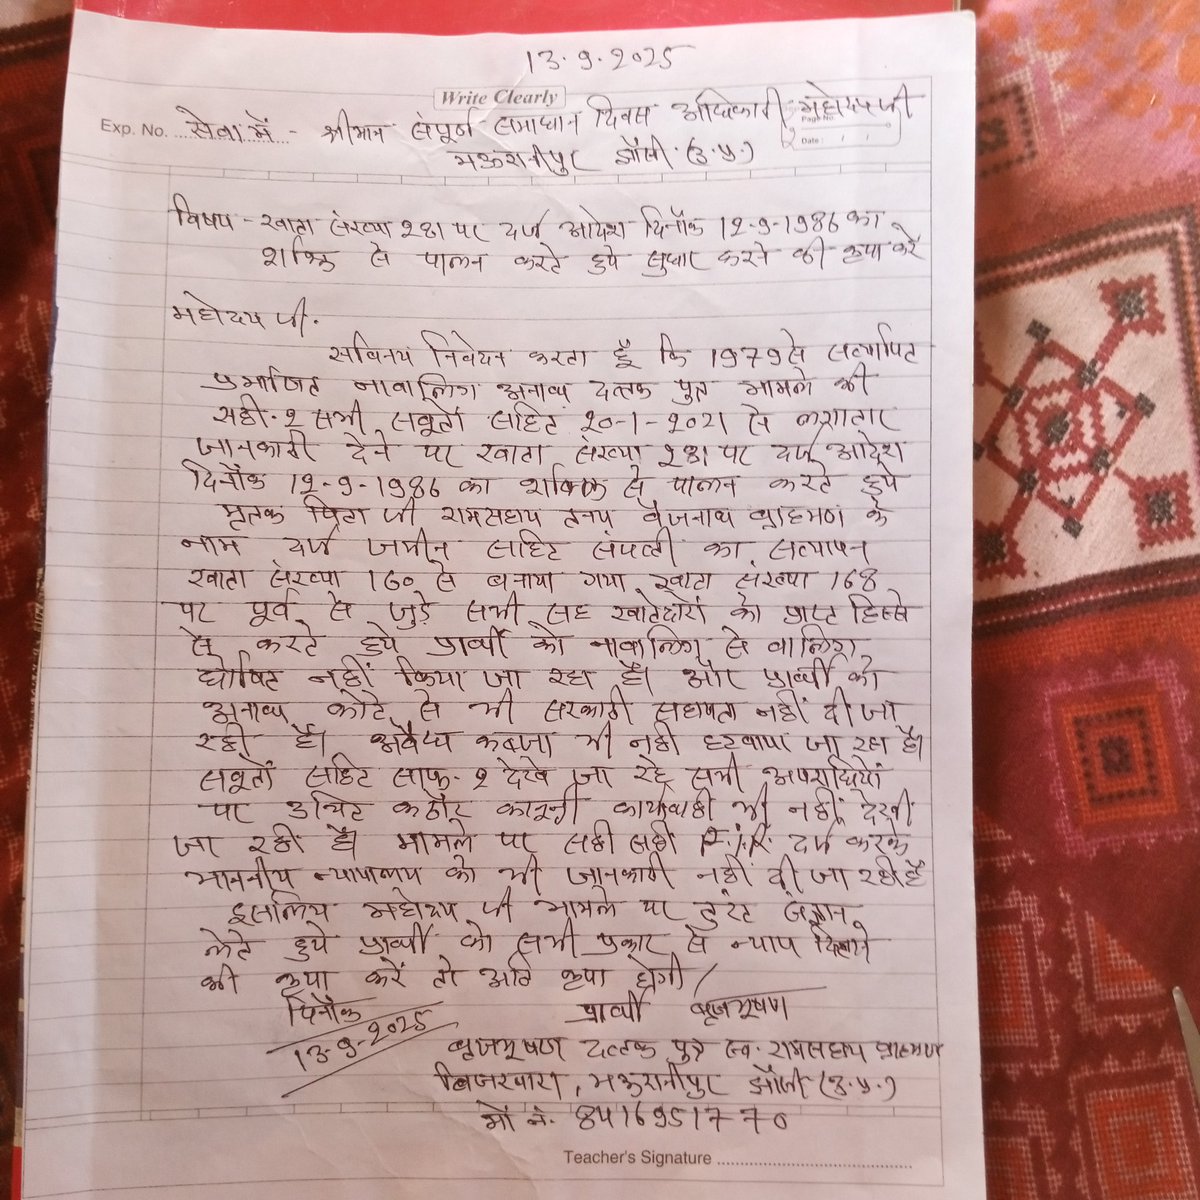 13.9.2025
Write Clearly
Exp. No. .... सेवा में - श्रीमान संपूर्ण समाधान दिवस अधिकारी महोदय जी
Page No.
Date :
मऊरानीपुर झाँसी (उ.प्र.)
विषय - खाता संख्या 281 पर दर्ज आदेश दिनाँक 12-9-1986 का
शक्ति से पालन करते हुये सुधार करने की कृपा करें
महोदय जी.
सविनय निवेदन करता हूँ कि 1979 से सत्यापित
प्रमाणित नाबालिग अनाथ दत्तक पुत्र मामले की
सही-2 सभी सबूतों सहित 20-1-2021 से लगातार
जानकारी देने पर खाता संख्या 281 पर दर्ज आदेश
दिनाँक 12-9-1986 का शक्ति से पालन करते हुये
मृतक पिता जी रामसहाय तनय बैजनाथ ब्राहमण के
नाम दर्ज जमीन सहित संपत्ती का सत्यापन
खाता संख्या 160 से बनाया गया खाता संख्या 168
पर पूर्व से जुड़े सभी सह खातेदारों को प्राप्त हिस्से
से करते हुये प्रार्थी को नाबालिग से बालिग
घोषित नहीं किया जा रहा है। और प्रार्थी को
अनाथ कोटे से भी सरकारी सहायता नहीं दी जा
रही है। अवैध्य कबजा भी नही हटवाया जा रहा है।
सबूतों सहित साफ-2 देखे जा रहे सभी अपराधियों
पर उचित कठोर कानूनी कार्यवाही भी नहीं देखी
जा रही है। मामले पर सही सही F.I.R. दर्ज करके
माननीय न्यायालय को भी जानकारी नही दी जा रही है
इसलिय महोदय जी मामले पर तुरंत संज्ञान
लेते हुये प्रार्थी को सभी प्रकार से न्याय दिलाने
की कृपा करें तो अति कृपा होगी।
दिनाँक प्रार्थी बृजभूषण
13-9-2025
बृजभूषण दत्तक पुत्र स्व. रामसहाय ब्राहमण
बिजरवारा, मऊरानीपुर झाँसी (उ.प्र.)
मो नं. 8416951770
Teacher's Signature ....................